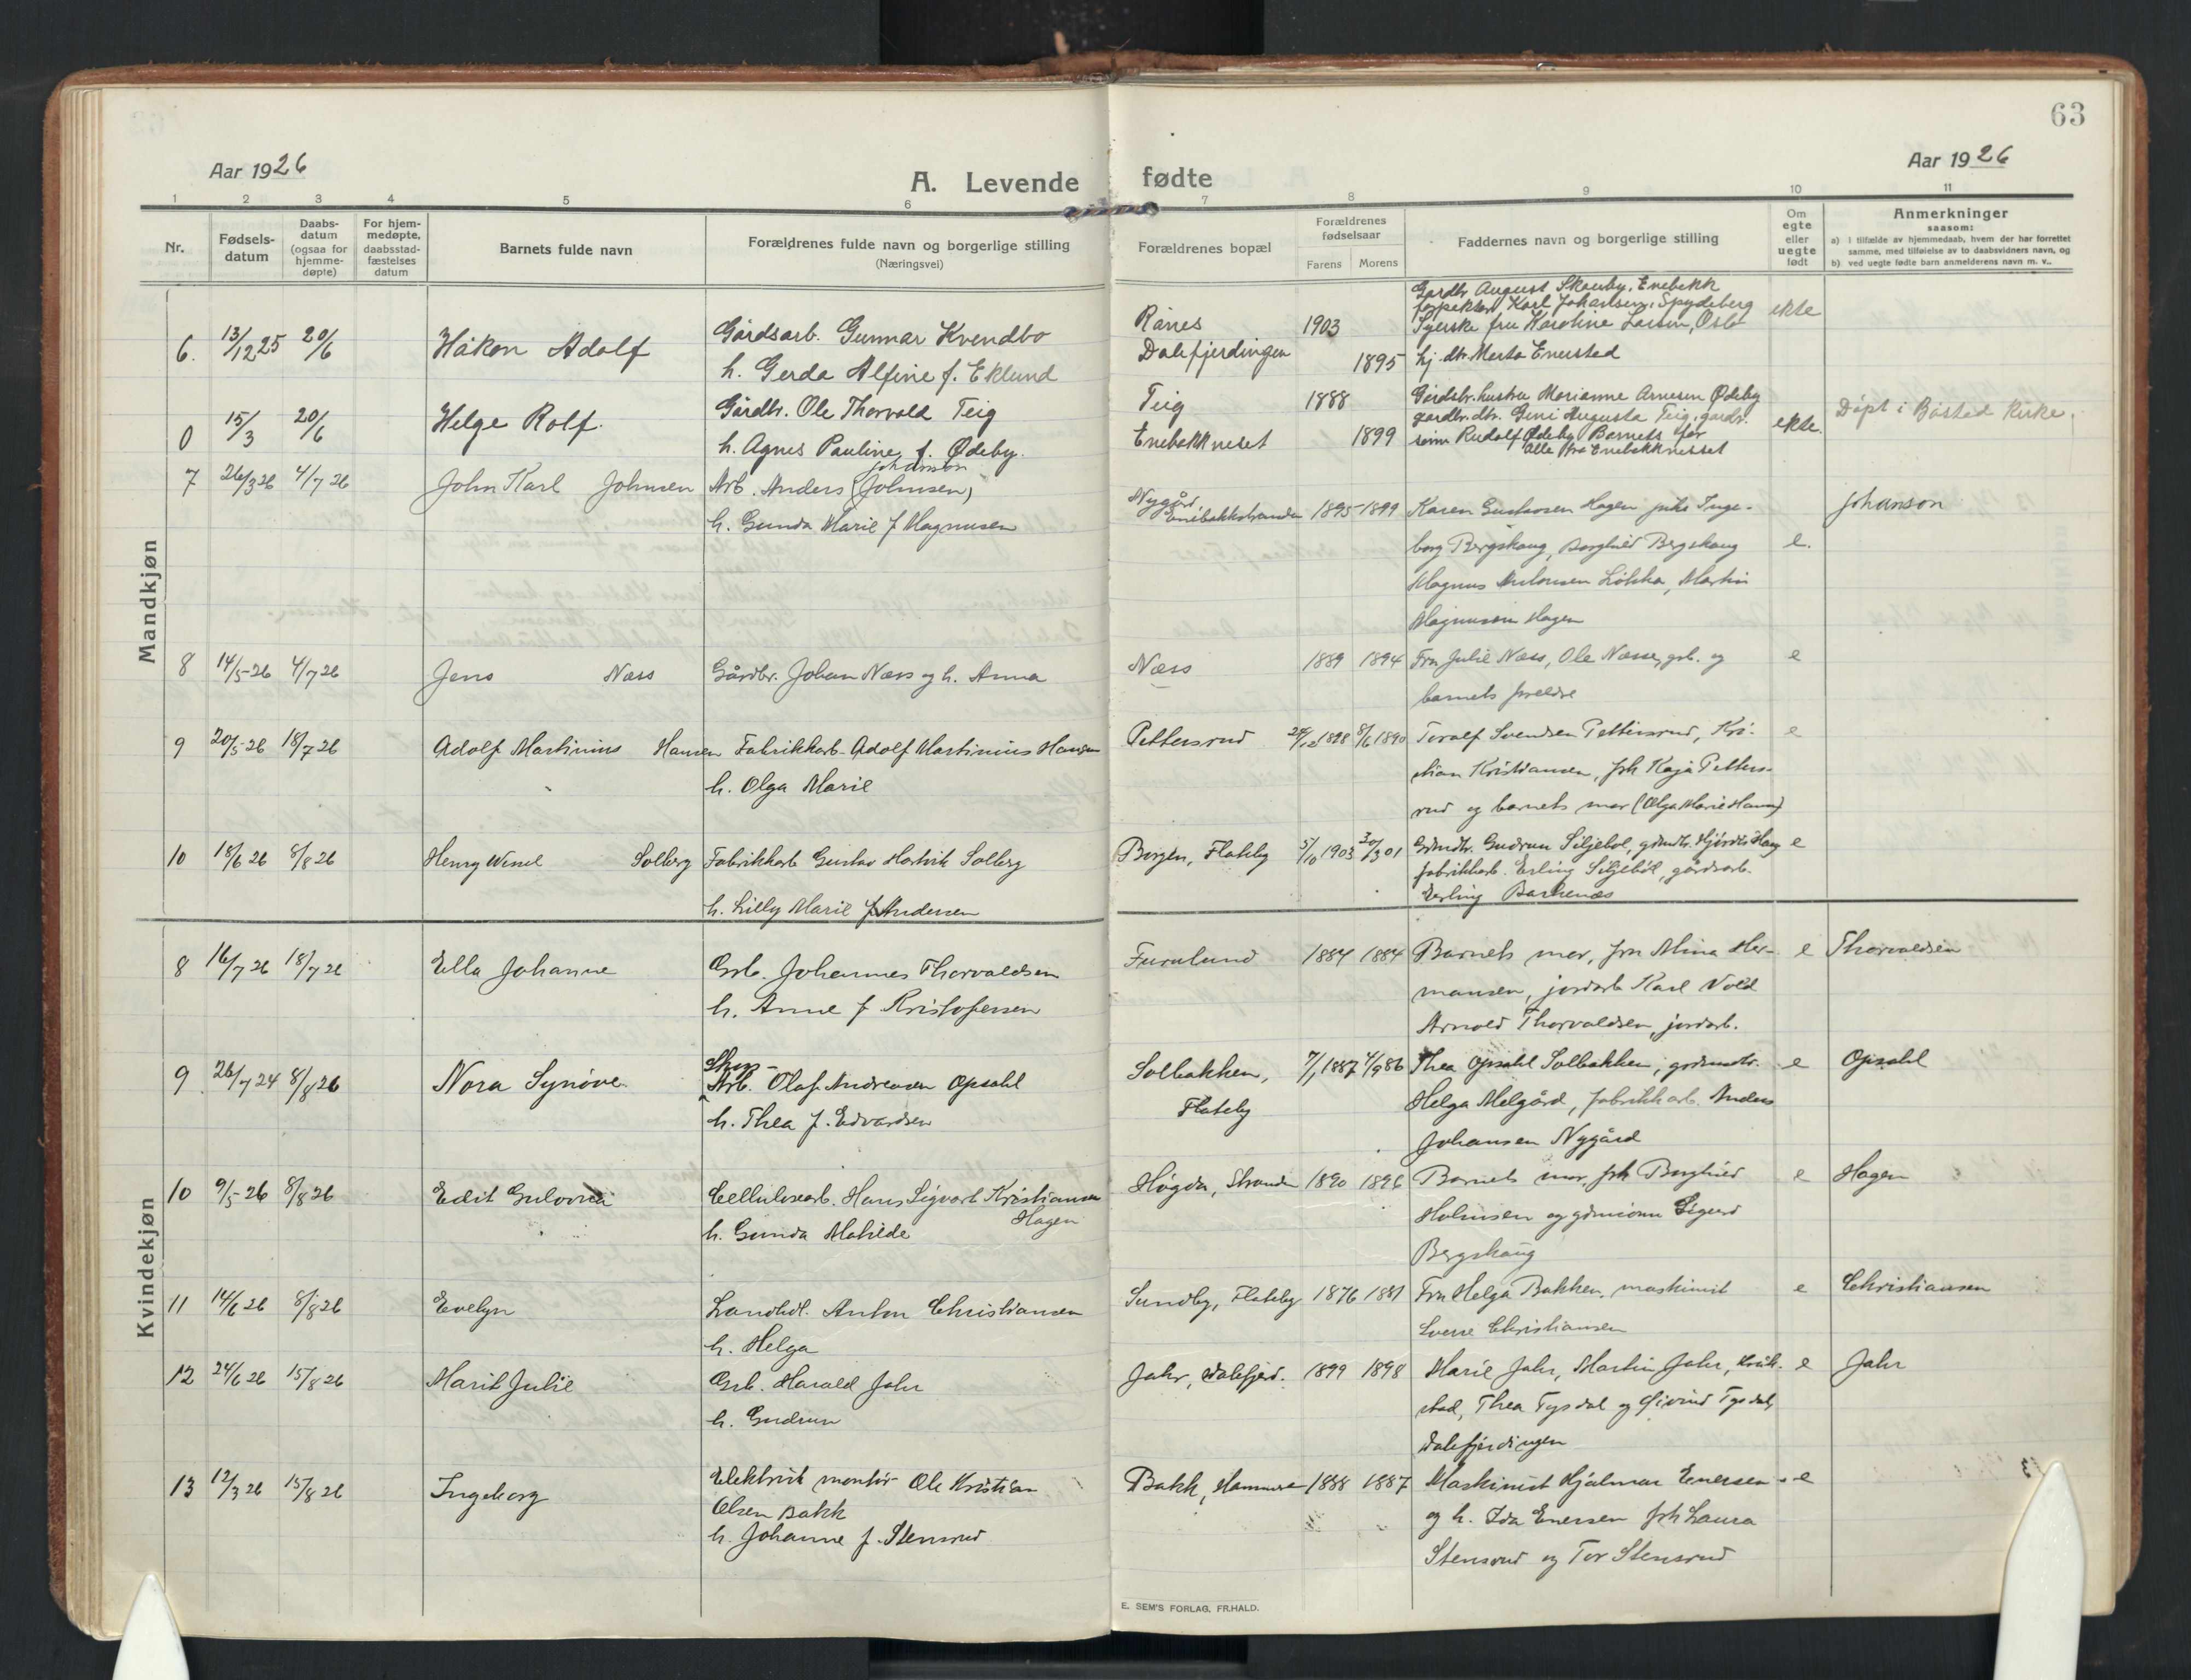 63
Aar 1926
Aar 1926
A. Levende fødte
1 2 3 4 5 6 7 8 9 10 11
Nr.
Fødsels-
datum
Daabs-
datum
(ogsaa for
hjemme-
døpte)
For hjem-
medøpte,
daabsstad-
fæstelses
datum
Barnets fulde navn
Forældrenes fulde navn og borgerlige stilling
(Næringsvei)
Forældrenes bopæl
Forældrenes
fødselsaar
Farens Morens
Faddernes navn og borgerlige stilling
Om
egte
eller
uegte
født
Anmerkninger
saasom:
a) i tilfælde av hjemmedaab, hvem der har forrettet
samme, med tilføielse av to daabsvidners navn, og
b) ved uegte fødte barn anmelderens navn m. v..
Mandkjøn
6. 13/12 25 20/6 Håkon Adolf
Gårdsarb. Gunnar Kvendbo
h. Gerda Alfine f. Eklund
Rånes 1903
Dalefjerdingen 1895
Gardbr. August Skauby, Enebakk
Karl Johansen, Spydeberg
Syerske fru Karoline Larsen, Oslo
hj. dtr. Marta Enersted
ekte
0 15/3 20/6 Helge Rolf.
Gårdbr. Ole Thorvald Teig
h. Agnes Pauline f. Ødeby.
Teig 1888
Enebakkneset 1899
Gårdsbr. hustru Marianne Arnesen Ødeby
gardbr. dtr. Gina Augusta Teig, gardbr.
sønn Rudolf Ødeby Barnets far
alle fra Enebakknesset
ekte.
Døpt i Båstad Kirke.
7 26/3 26 4/7 26 John Karl Johnsen
Johanson
Arb. Anders (Johnsen)
h. Gunda Marie f Magnusen
Nygård
Enebakkstranden 1895-1899
Karen Gustavsen Hagen pike Inge-
borg Bergskaug, Borghild Bergskaug
Magnus Løkka, Martin
Magnusen Hagen
e.
Johanson
8 14/5-26 4/7 26 Jens Næss
Gårdbr. Johan Næss og h. Anna
Næss 1889 1894
Fru Julie Næss, Ole Næsse, grb. og
barnets foreldre
e
9 20/5-26 18/7 26 Adolf Martinius Hansen
Fabrikkarb. Adolf Martinius Hansen
h. Olga Marie
Pettersrud 29/12 1898 8/6 1890
Toralf Svendsen Pettersrud, Kri-
stian Kristiansen, frk Kaja Petters-
rud og barnets mor (Olga Marie Hansen)
e
10 18/6 26 8/8 26 Henry Wessel Solberg
Fabrikkarb Gustav Hartvik Solberg
h. Lilly Marie f Andersen
Bergen, Flateby 5/10 1903 30/3 01
Grdmdtr. Gudrun Siljebøl, grdmdtr. Hjørdis Haug
fabrikkarb. Erling Siljebøl, gårdsarb.
Erling Barkenæs
e
Kvindekjøn
8 16/7 26 18/7 26 Ella Johanne
Grb. Johannes Thorvaldsen
h. Anne f Kristofersen
Furulund 1884 1884
Barnets mor, fru Alma Her-
mansen, jordarb Karl Vold
Arnold Thorvaldsen, jordarb.
e
Thorvaldsen
9. 26/7 24 8/8 26 Nora Synøve.
Skog-
Arb. Olaf Andreasen Opsahl
h. Thea f. Edvardsen
Solbakken,
Flateby
7/1 1887 4/9 86
Thea Opsahl Solbakken, grdmdtr.
Helga Melgård, fabrikkarb. Anders
Johansen Nygård
e
Opsahl
10 9/5-26 8/8 26 Edit Gulovna
Cellulosearb. Hans Sigvart Kristiansen
Hagen
h. Gunda Mathilde
Høgda, Stranden 1890 1896
Barnets mor, frk Borghild
Holmsen og Sigurd
Bergskaug
e
Hagen
11 14/6 26 8/8 26 Evelyn
Landhdl. Anton Christiansen
h. Helga
Sundby, Flateby 1876 1881
Fru Helga Bakken, maskinist
Sverre Christiansen
e
Christiansen
12 24/6 26 15/8 26 Marit Julie
Grb. Harald Jahr
h. Gudrun
Jahr, Dalefjerd. 1899 1898
Marie Jahr, Martin Jahr, Kråk-
stad, Thea Tysdal og Øivind Tysdal,
Dalefjerdingen
e
Jahr
13 12/3 26 15/8 26 Ingeborg
Elektrisk montør Ole Kristian
Olsen Bakk
h. Johanne f. Stensrud
Bakk, Hammeren 1888 1887
Maskinist Hjalmar Enersen
og h. Ida Enersen frk Laura
Stensrud og Tor Stensrud
e
E. SEM'S FORLAG, FR.HALD.